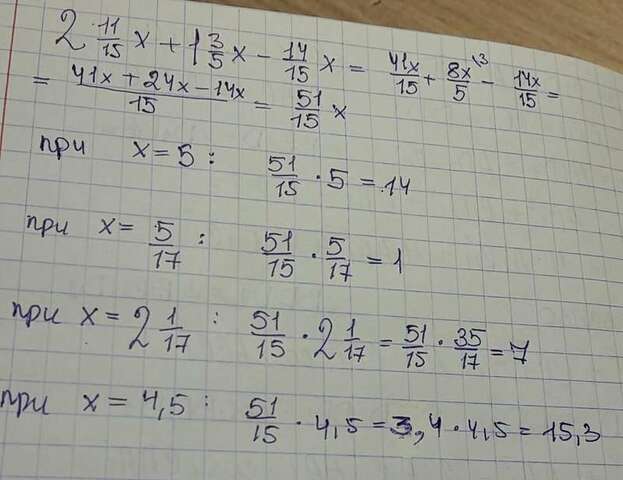 2 11/15 x + 1 3/5 x - 14/15 x = 41x/15 + 8x/5 \3 - 14x/15 =
= 41x + 24x - 14x/15 = 51/15 x
при x = 5 : 51/15 · 5 = 14
при x = 5/17 : 51/15 · 5/17 = 1
при x = 2 1/17 : 51/15 · 2 1/17 = 51/15 · 35/17 = 7
при x = 4,5 : 51/15 · 4,5 = 3,4 · 4,5 = 15,3